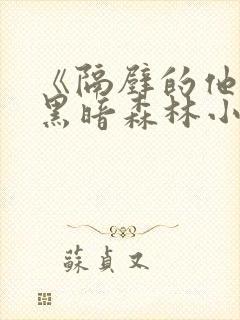 《隔壁的他
黑暗森林小
蘇貞又